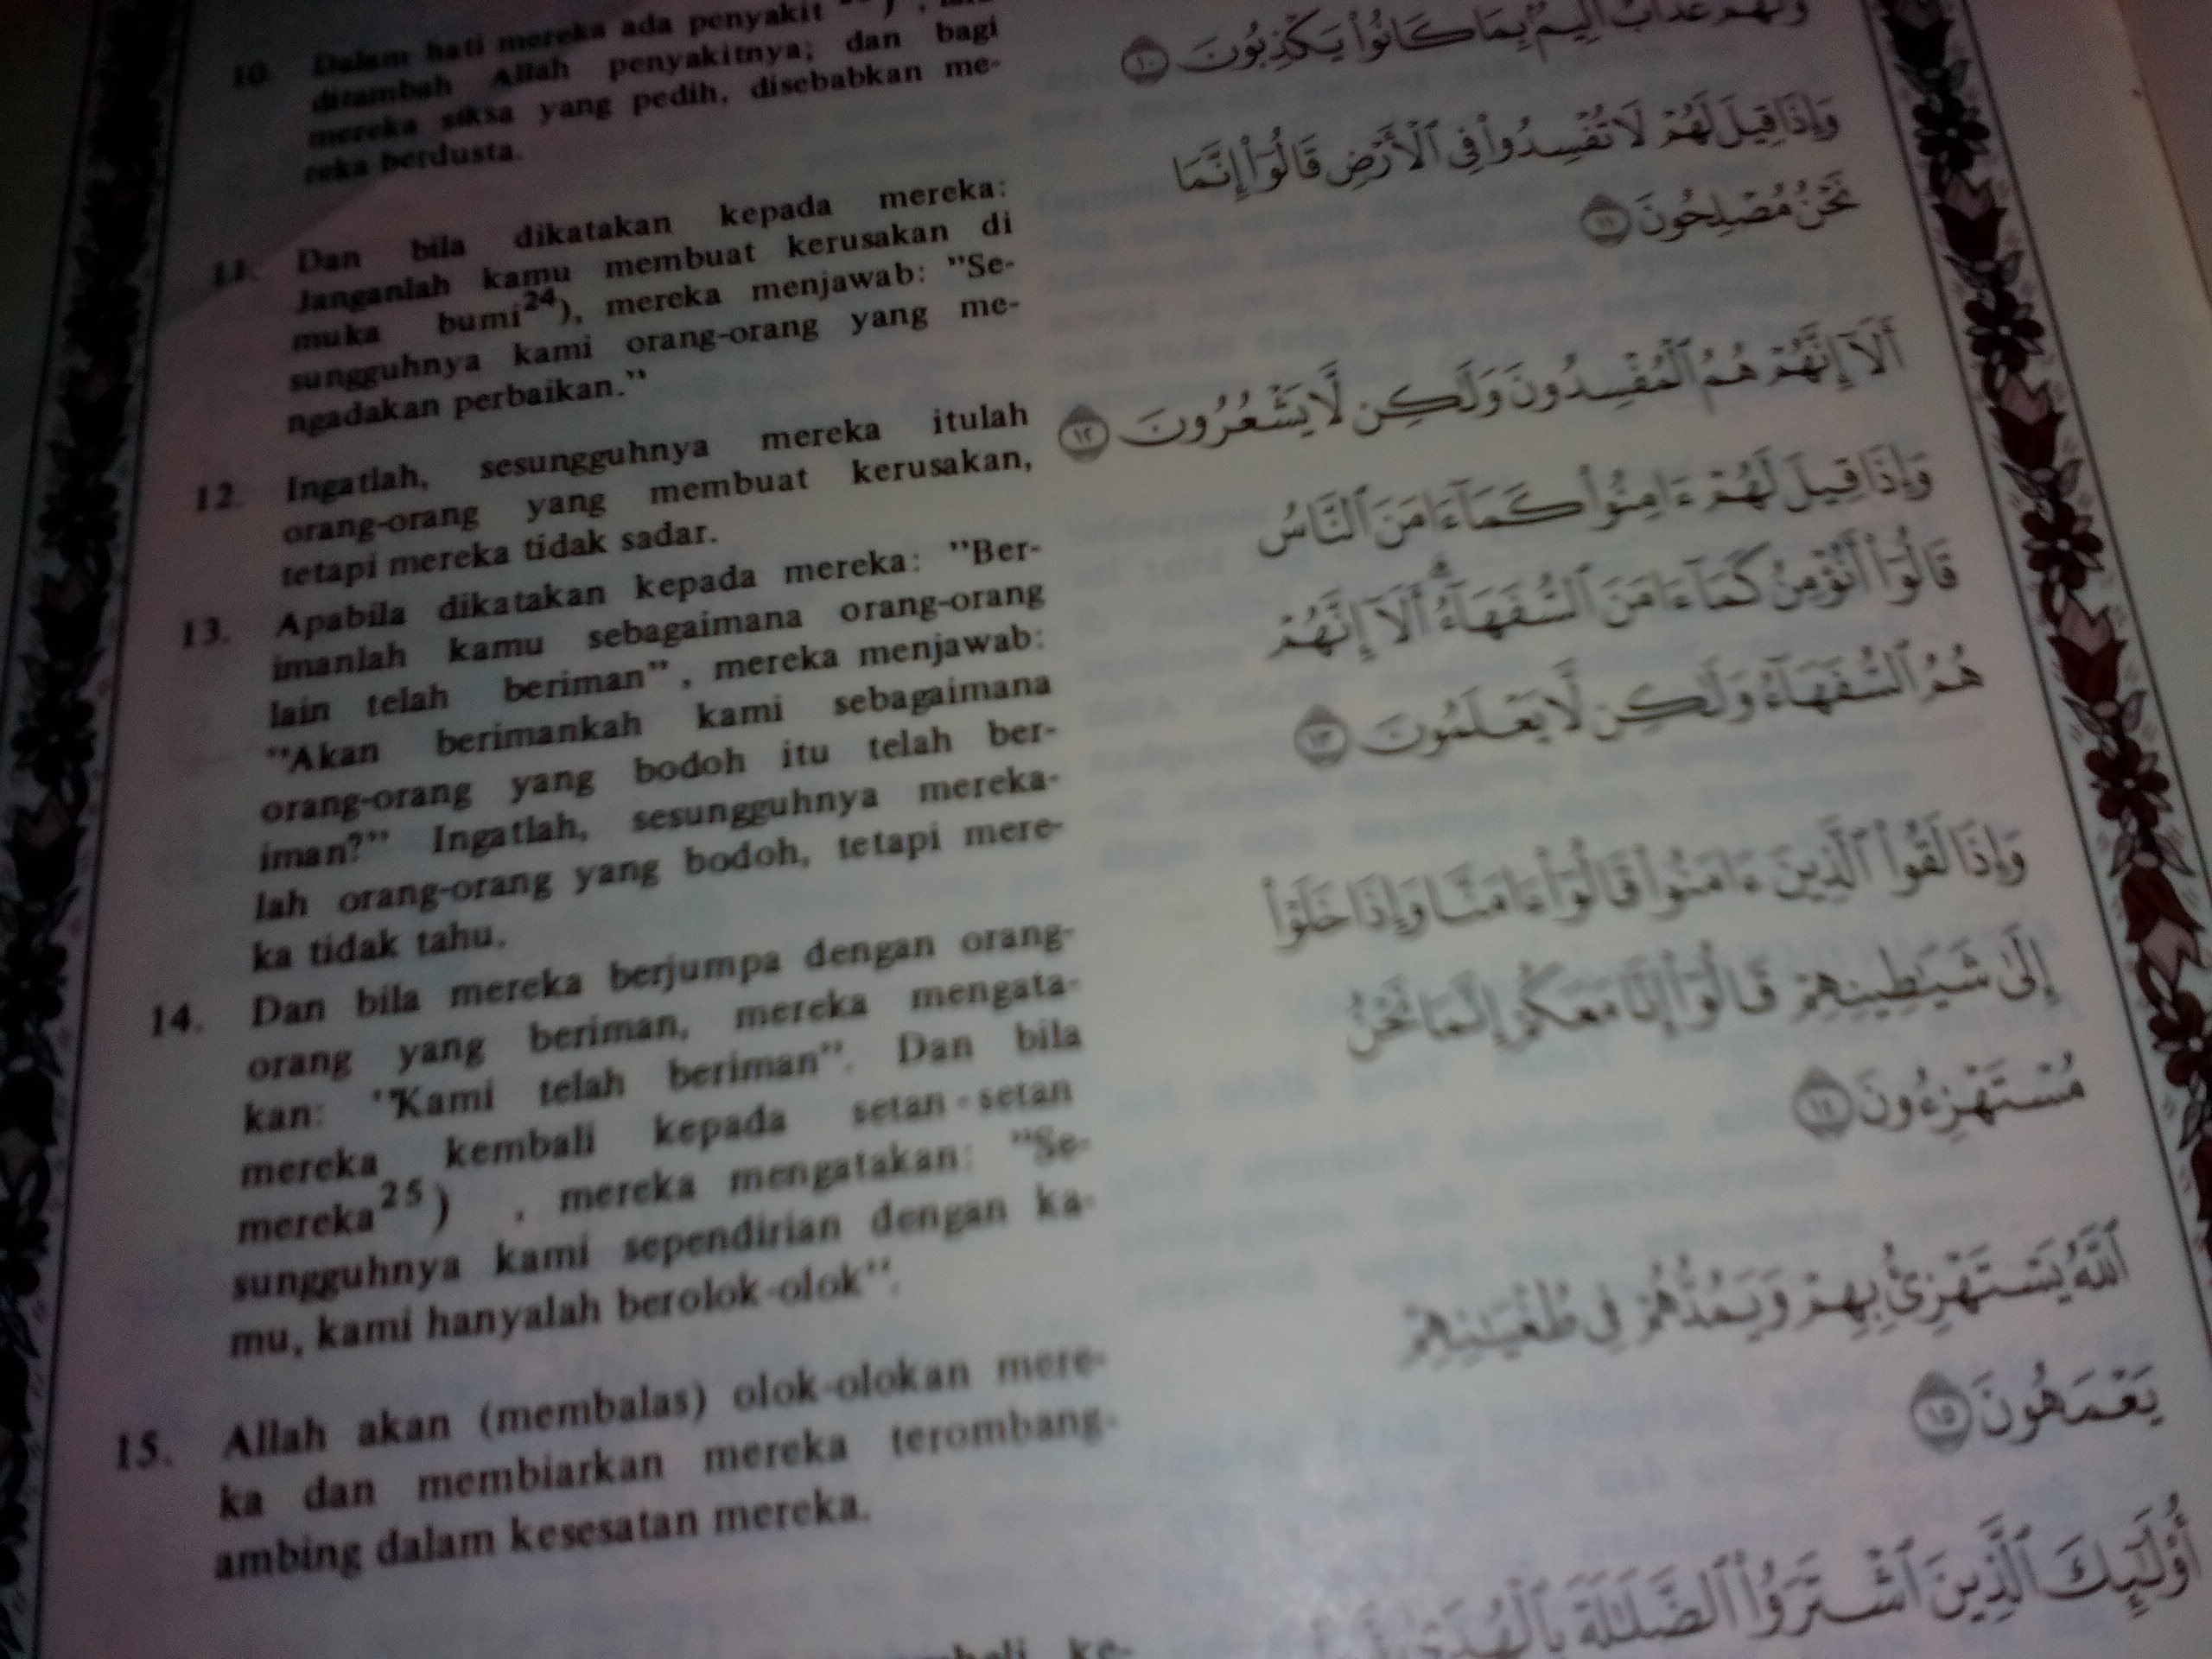 10. Dalam hati mereka ada penyakit
ditambah Allah penyakitnya; dan bagi
mereka siksa yang pedih, disebabkan me-
reka berdusta.
11. Dan bila dikatakan kepada mereka:
Janganlah kamu membuat kerusakan di
muka bumi²⁴), mereka menjawab: ”Se-
sungguhnya kami orang-orang yang me-
ngadakan perbaikan.”
12. Ingatlah, sesungguhnya mereka itulah
orang-orang yang membuat kerusakan,
tetapi mereka tidak sadar.
13. Apabila dikatakan kepada mereka: ”Ber-
imanlah kamu sebagaimana orang-orang
lain telah beriman”, mereka menjawab:
”Akan berimankah kami sebagaimana
orang-orang yang bodoh itu telah ber-
iman?” Ingatlah, sesungguhnya mereka-
lah orang-orang yang bodoh, tetapi mere-
ka tidak tahu.
14. Dan bila mereka berjumpa dengan orang-
orang yang beriman, mereka mengata-
kan: ”Kami telah beriman”. Dan bila
mereka kembali kepada setan-setan
mereka²⁵) , mereka mengatakan: ”Se-
sungguhnya kami sependirian dengan ka-
mu, kami hanyalah berolok-olok”.
15. Allah akan (membalas) olok-olokan mere-
ka dan membiarkan mereka terombang-
ambing dalam kesesatan mereka.
ke-
وَلَهُمْ عَذَابٌ أَلِيمٌۢ بِمَا كَانُوا۟ يَكْذِبُونَ ١٠
وَإِذَا قِيلَ لَهُمْ لَا تُفْسِدُوا۟ فِى ٱلْأَرْضِ قَالُوٓا۟ إِنَّمَا
نَحْنُ مُصْلِحُونَ ١١
أَلَآ إِنَّهُمْ هُمُ ٱلْمُفْسِدُونَ وَلَٰكِن لَّا يَشْعُرُونَ ١٢
وَإِذَا قِيلَ لَهُمْ ءَامِنُوا۟ كَمَآ ءَامَنَ ٱلنَّاسُ
قَالُوٓا۟ أَنُؤْمِنُ كَمَآ ءَامَنَ ٱلسُّفَهَآءُ ۗ أَلَآ إِنَّهُمْ
هُمُ ٱلسُّفَهَآءُ وَلَٰكِن لَّا يَعْلَمُونَ ١٣
وَإِذَا لَقُوا۟ ٱلَّذِينَ ءَامَنُوا۟ قَالُوٓا۟ ءَامَنَّا وَإِذَا خَلَوْا۟
إِلَىٰ شَيَٰطِينِهِمْ قَالُوٓا۟ إِنَّا مَعَكُمْ إِنَّمَا نَحْنُ
مُسْتَهْزِءُونَ ١٤
ٱللَّهُ يَسْتَهْزِئُ بِهِمْ وَيَمُدُّهُمْ فِى طُغْيَٰنِهِمْ
يَعْمَهُونَ ١٥
أُو۟لَٰٓئِكَ ٱلَّذِينَ ٱشْتَرَوُا۟ ٱلضَّلَٰلَةَ بِٱلْهُدَىٰ